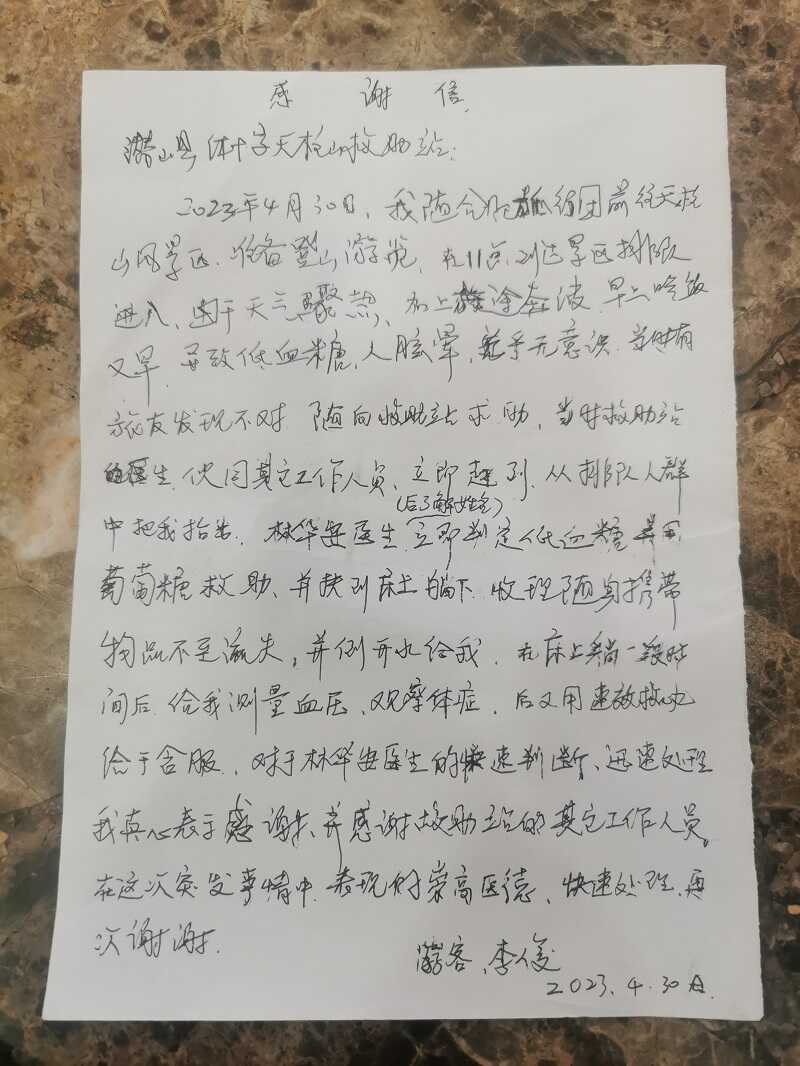 感 谢 信
潜山县红十字天柱山救助站:
2023年4月30日,我随合肥旅行团前往天柱
山风景区.准备登山游览,在11点到达景区排队
进入,由于天气骤热、加上旅途奔波.早上吃饭
又早.导致低血糖,人眩晕,乎无意识.当时有
旅友发现不对 随向救助站求助,当时救助站
医生.伙同其它工作人员、立即赶到.从排队人群
中把我抬出.林华安医生(后了解姓名)立即判定低血糖并用
葡萄糖救助、并扶到床上躺下.收理随身携带
物品不至流失,并倒开水给我.在床上躺一段时
间后.给我测量血压、观察体症.后又用速效救心丸
给于含服.对于林华安医生的快速判断、迅速处理
我真心表于感谢、并感谢救助站的其它工作人员。
在这次突发事情中.表现的崇高医德、快速处理.再
次谢谢.
游客、李俊
2023.4.30日.